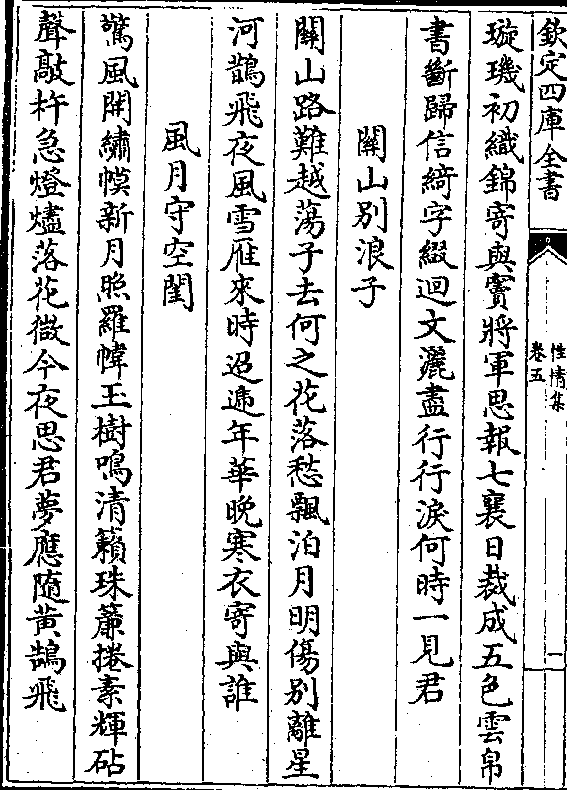 欽定四庫全書
性情集
卷五
一
璇璣初織錦寄與竇將軍思報七襄日裁成五色雲帛
書斷歸信綺字綴迴文灑盡行行淚何時一見君
關山别浪子
關山路難越蕩子去何之花落愁飄泊月明傷别離星
河鵲飛夜風雪雁來時迢遞年華晚寒衣寄與誰
風月守空閨
驚風開繡幙新月照羅幃玉樹鳴清籟珠簾捲素輝砧
聲敲杵急燈燼落花微今夜思君夢應随黄鵠飛